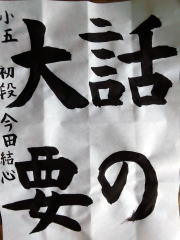 話の
大要
小五 初段 今田結心